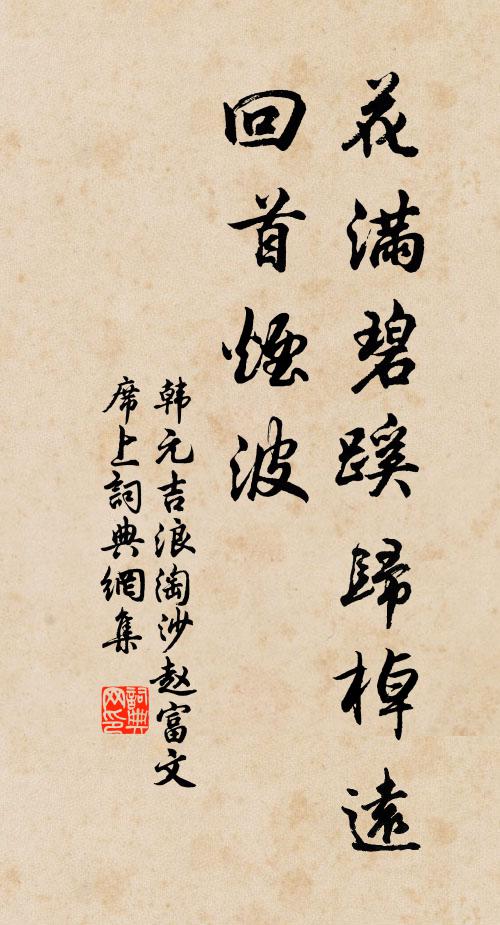 花满碧蹊歸棹遠
回首煙波
韩元吉浪淘沙赵富文
席上詞典網集
詞典
网印